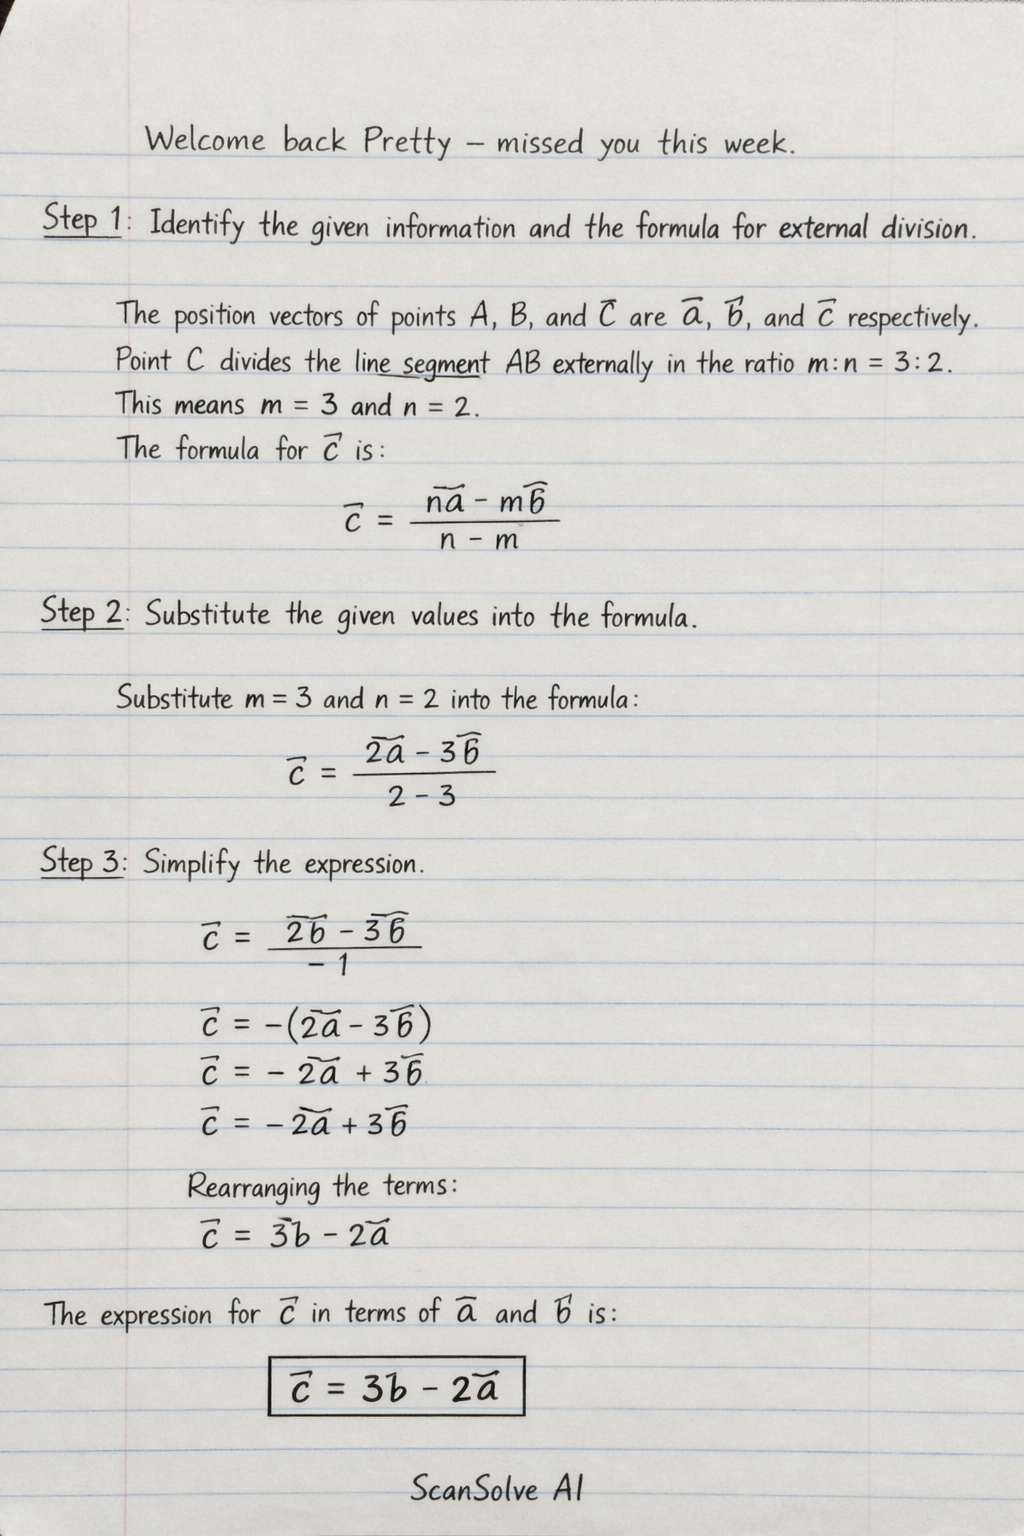 Welcome back Pretty – missed you this week.
Step 1: Identify the given information and the formula for external division.
The position vectors of points A, B, and C̅ are a̅, b̅, and c̅ respectively.
Point C divides the line segment AB externally in the ratio m:n = 3:2.
This means m = 3 and n = 2.
The formula for c̅ is:
c̅ = (n͞a - m͞b) / (n - m)
Step 2: Substitute the given values into the formula.
Substitute m = 3 and n = 2 into the formula:
c̅ = (2͞a - 3b̅) / (2 - 3)
Step 3: Simplify the expression.
c̅ = (2͞b - 3͞b) / -1
c̅ = -(2͞a - 3b̅)
c̅ = - 2͞a + 3b̅
c̅ = - 2͞a + 3b̅
Rearranging the terms:
c̅ = 3͞b - 2a̅
The expression for c̅ in terms of a̅ and b̅ is:
c̅ = 3b̅ - 2a̅
ScanSolve AI